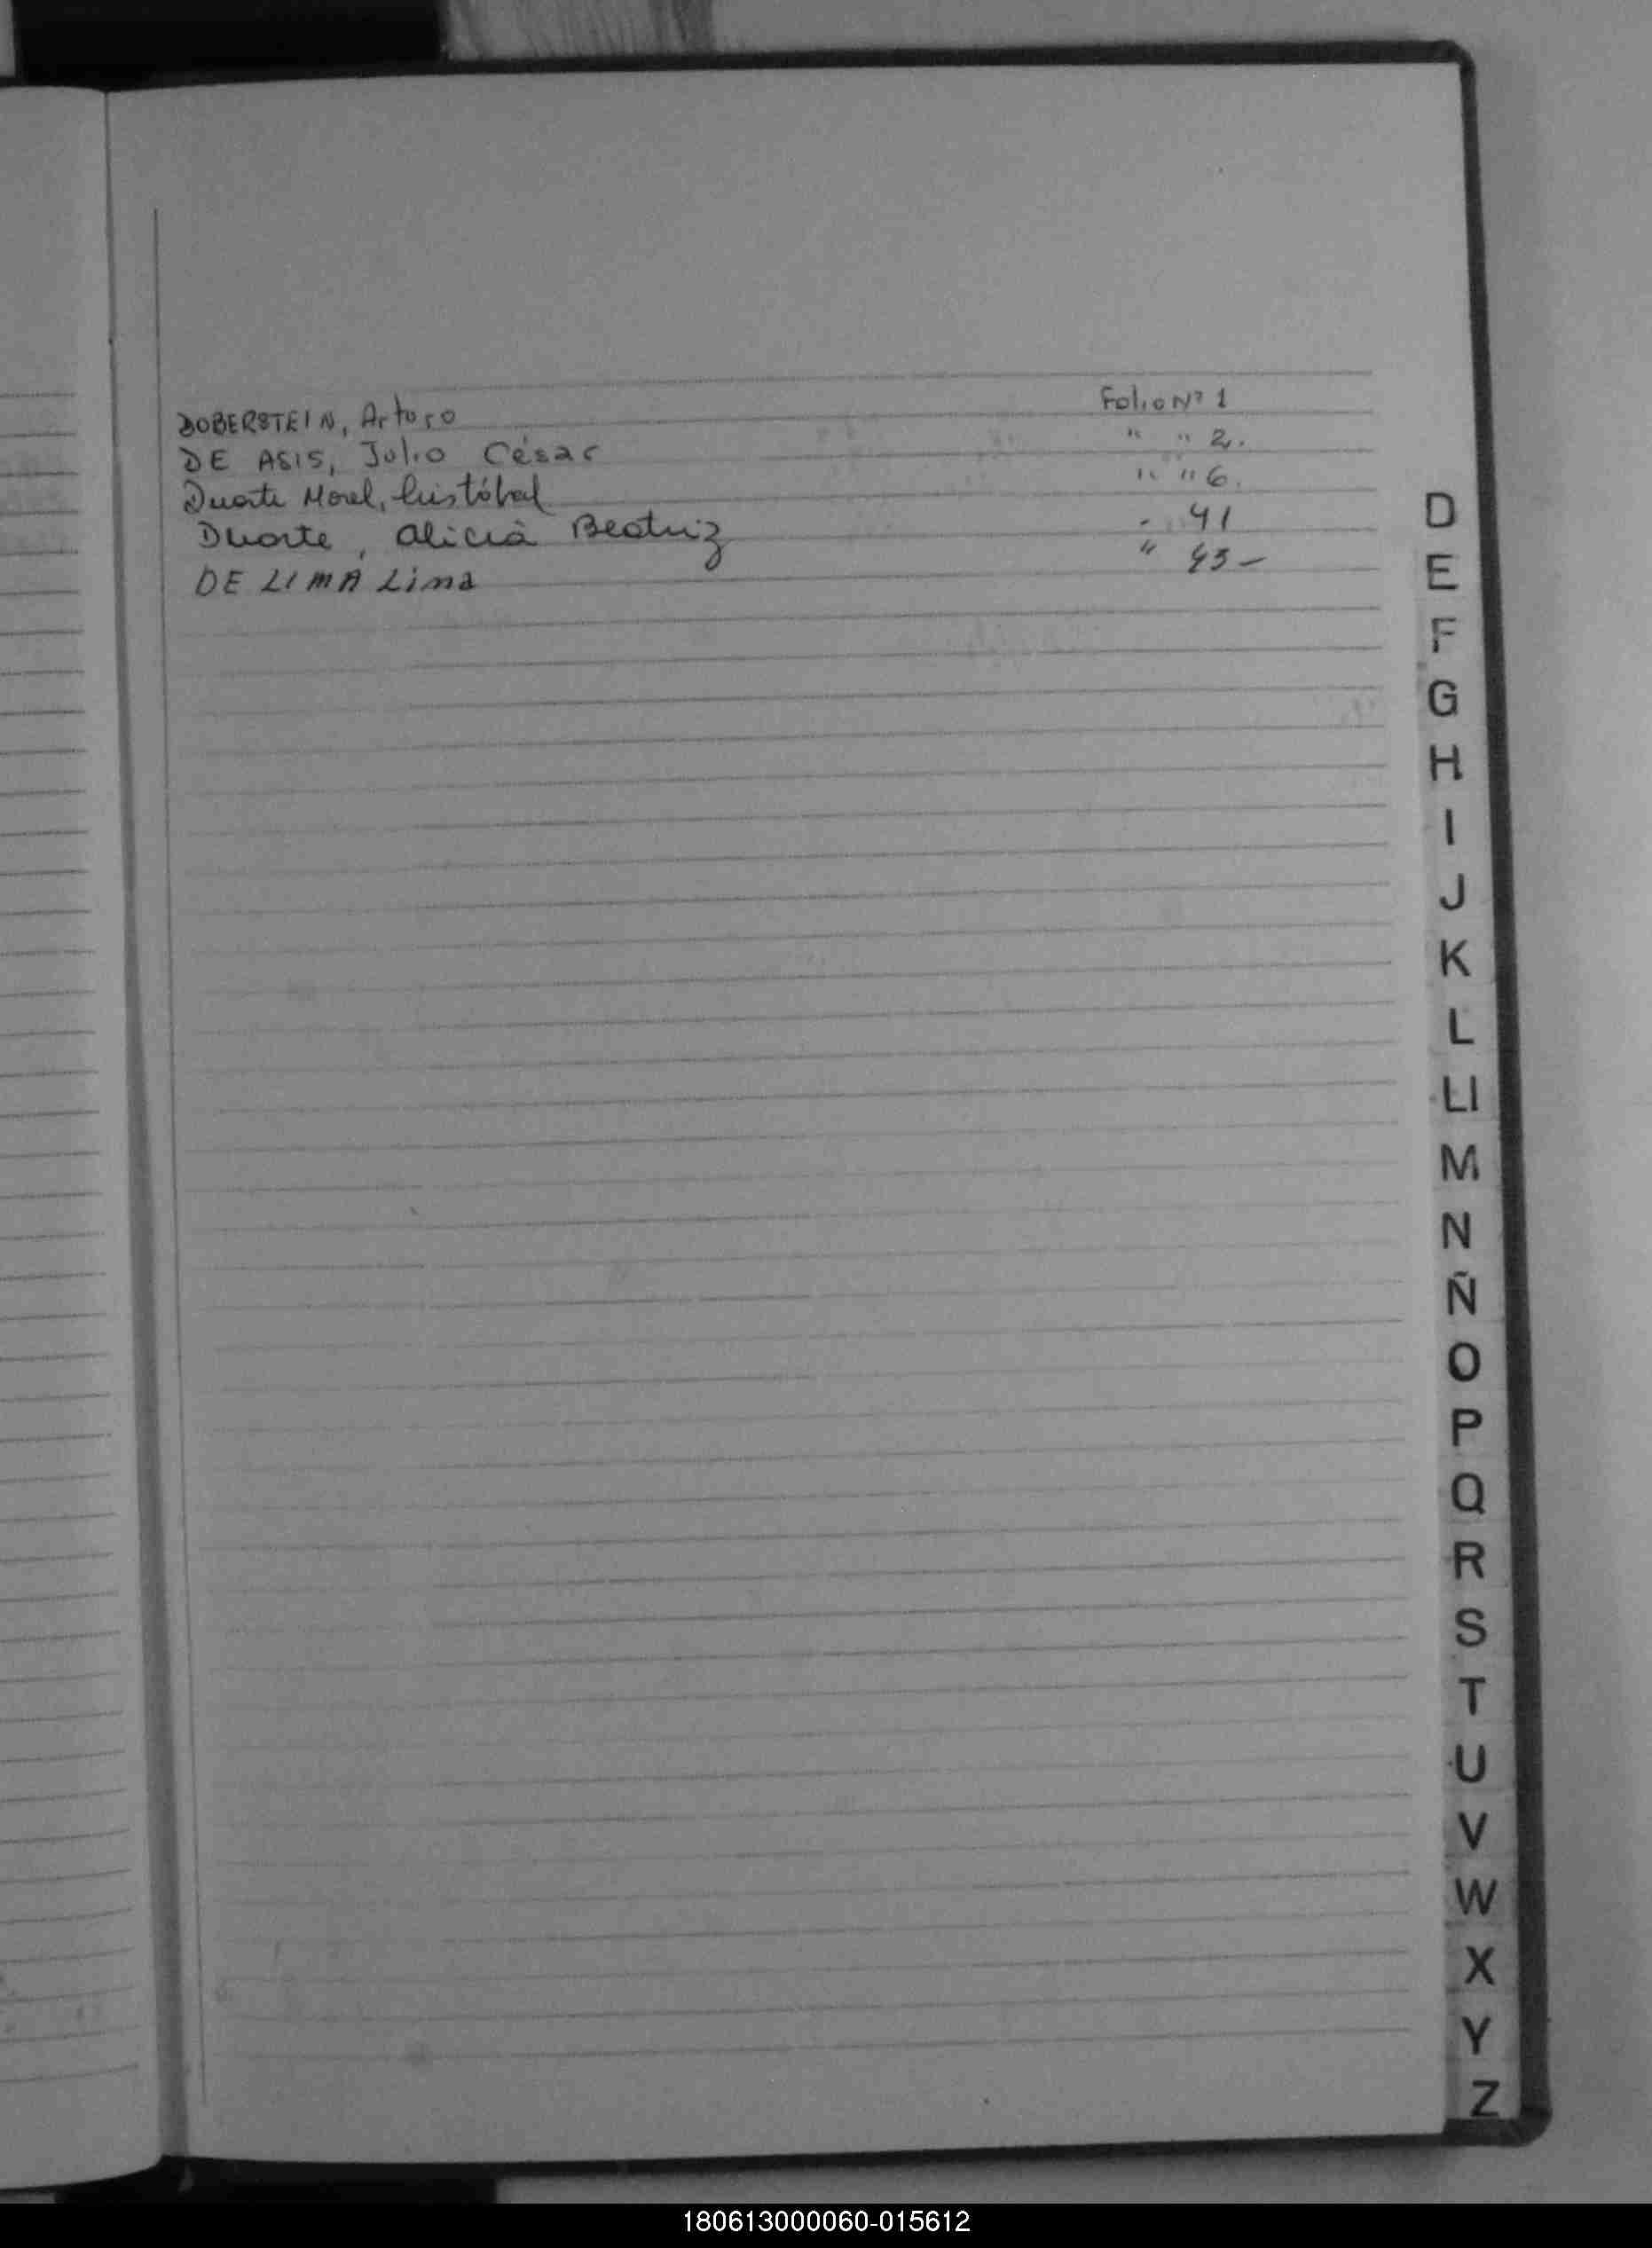 DOBERSTEIN, Arturo Folio Nº 1
DE ASIS, Julio César " " 2.
Duarte Morel, Cristóbal " " 6.
Duarte, Alicia Beatriz " 41
DE LIMA Lima " 43 -
D
E
F
G
H
I
J
K
L
Ll
M
N
Ñ
O
P
Q
R
S
T
U
V
W
X
Y
Z
180613000060-015612